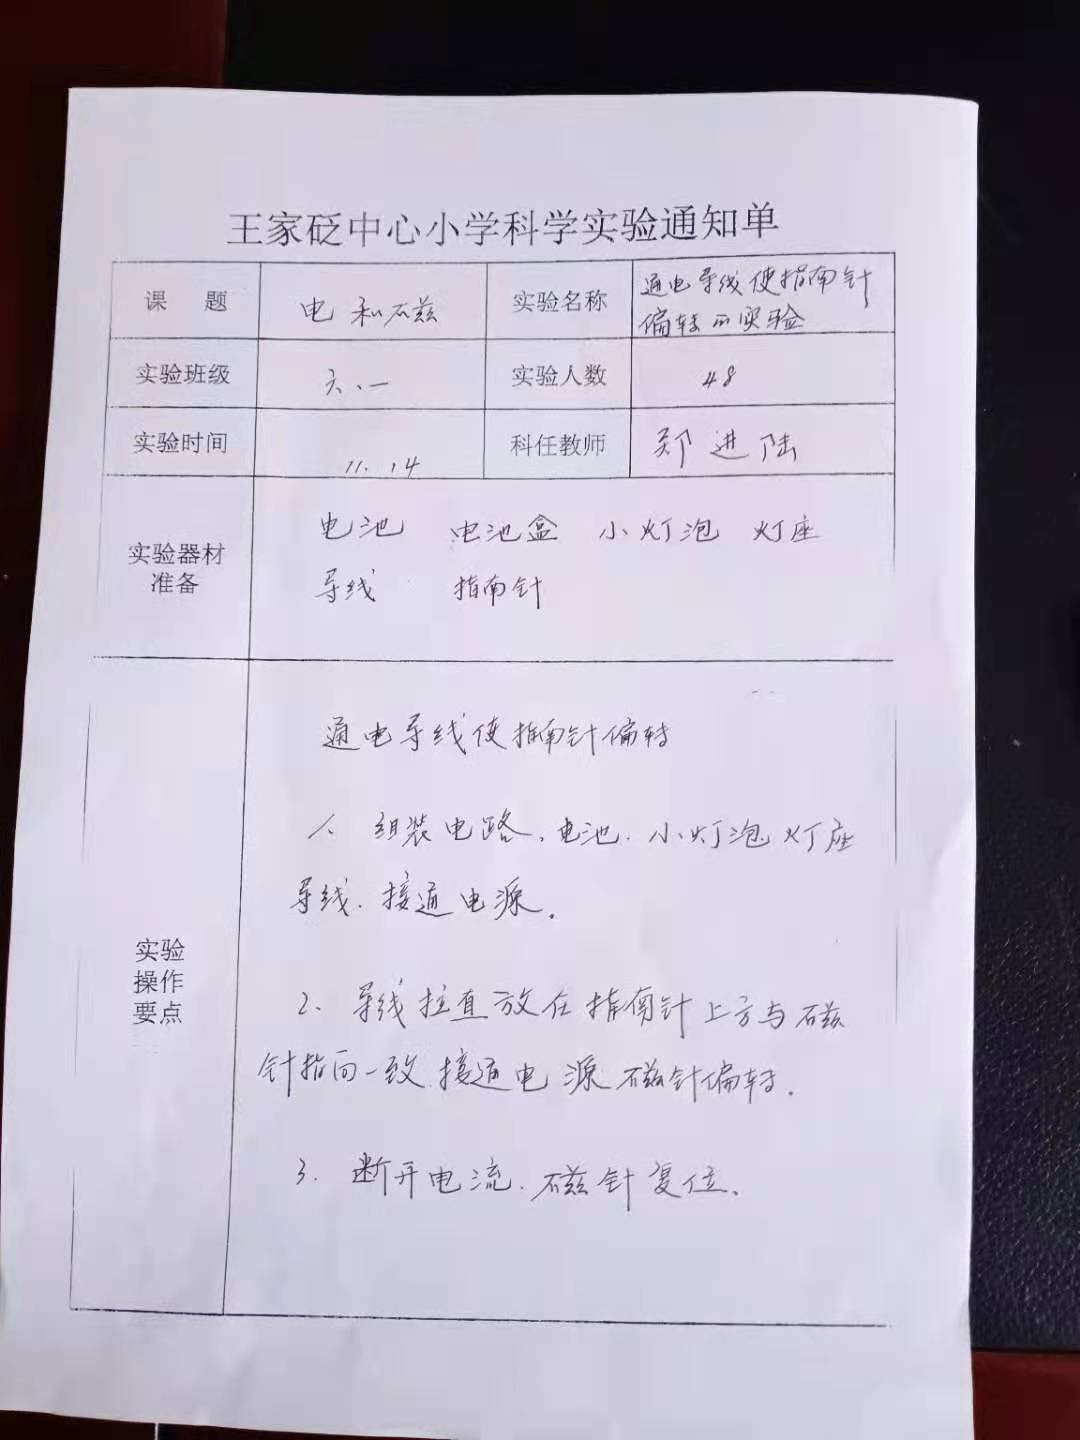 王家砭中心小学科学实验通知单
课 题 电和磁 实验名称 通电导线使指南针
偏转的实验
实验班级 六、一 实验人数 48
实验时间 11.14 科任教师 郑进陆
电池 电池盒 小灯泡 灯座
实验器材
准备
导线 指南针
通电导线使指南针偏转
1、组装电路、电池.小灯泡 灯座
导线.接通电源.
实验
操作
要点
2、导线拉直放在指南针上方与磁
针指向一致.接通电源 磁针偏转.
3.断开电流.磁针复位.